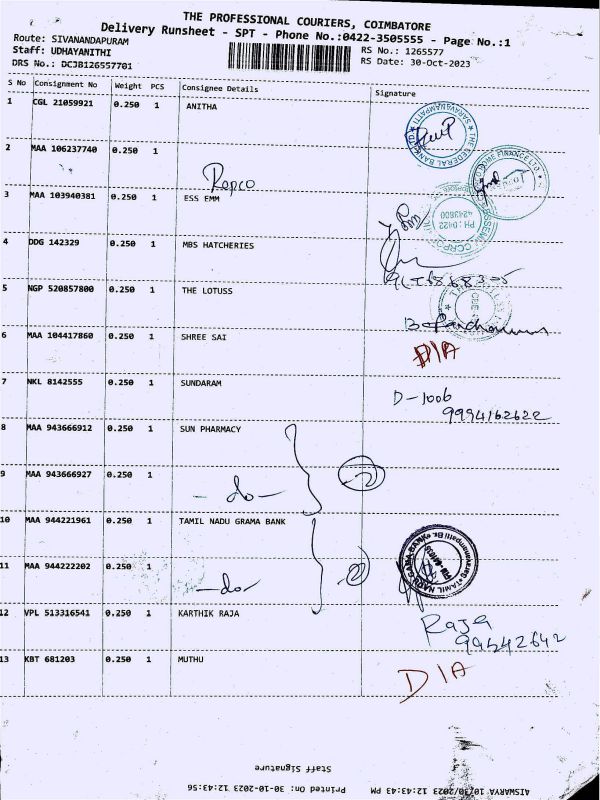 THE PROFESSIONAL COURIERS, COIMBATORE
Delivery Runsheet - SPT - Phone No.:0422-3505555 - Page No.:1
Route: SIVANANDAPURAM
RS No.: 1265577
Staff: UDHAYANITHI
RS Date: 30-Oct-2023
DRS No.: DCJB126557701
S No Consignment No Weight PCS Consignee Details Signature
1 CGL 21059921 0.250 1 ANITHA
SARAVANAMPATTI * THE FEDERAL BANK LTD
2 MAA 106237740 0.250 1
Repco HOME FINANCE LTD.
3 MAA 103940381 0.250 1 ESS EMM
PH : 0422 4243600
4 DDG 142329 0.250 1 MBS HATCHERIES
5 NGP 520857800 0.250 1 THE LOTUSS
6 MAA 104417860 0.250 1 SHREE SAI D/A
7 NKL 8142555 0.250 1 SUNDARAM
D-1006
9994162622
8 MAA 943666912 0.250 1 SUN PHARMACY
9 MAA 943666927 0.250 1
-do- 2
10 MAA 944221961 0.250 1 TAMIL NADU GRAMA BANK
TAMIL NADU GRAMA BANK
11 MAA 944222202 0.250 1
-do- 2
12 VPL 513316541 0.250 1 KARTHIK RAJA
Raja
99542642
13 KBT 681203 0.250 1 MUTHU
D/A
Staff Signature
Printed On: 30-10-2023 12:43:56
AISWARYA 10/30/2023 12:43:43 PM